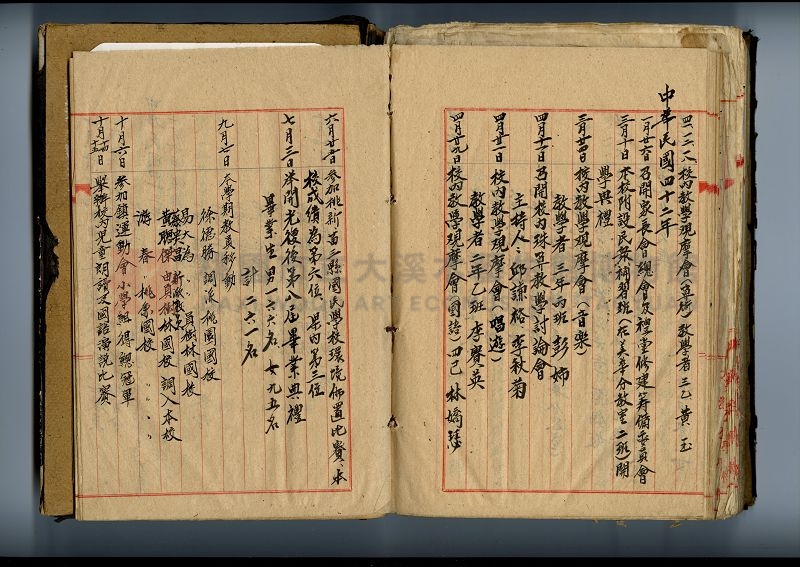 中華民國四十二年
四、二、八 校內教學觀摩會(算術)教學者三乙黃玉
一月廿六日 召開家長會總會及禮堂修建籌備委員會
三月十日 本校附設民眾補習班(在美華分教室二班)開
學典禮
三月廿四日 校內教學觀摩會(音樂)
教學者 三年丙班 彭 姉
四月十一日 召開校內珠算教學討論會
主持人 邱諒裕 李秋菊
四月廿一日 校內教學觀摩會(唱遊)
教學者 二年乙班 李縏英
四月廿九日 校內教學觀摩會(國語)四己 林嬌
六月廿二日 參加桃新苗三縣國民學校環境佈置比賽、本
校成績為第六位 縣內第三位
七月三日 举開光復後第八屆畢業典禮
畢業生 男一六六名 女九五名
計二六一名
九月七日 本學期教員移動
徐德勝 調派桃園國校
易大為 〃 員樹林國校
蔡吳昌 新派
黃聯傑 由員樹林國校 調入本校
游春 〃 桃原國校 〃 〃 〃
十月六日 參加鎮運動會小學組得總冠軍
十月十四日 十五 舉辦校內兒童朗讀及國語演說比賽